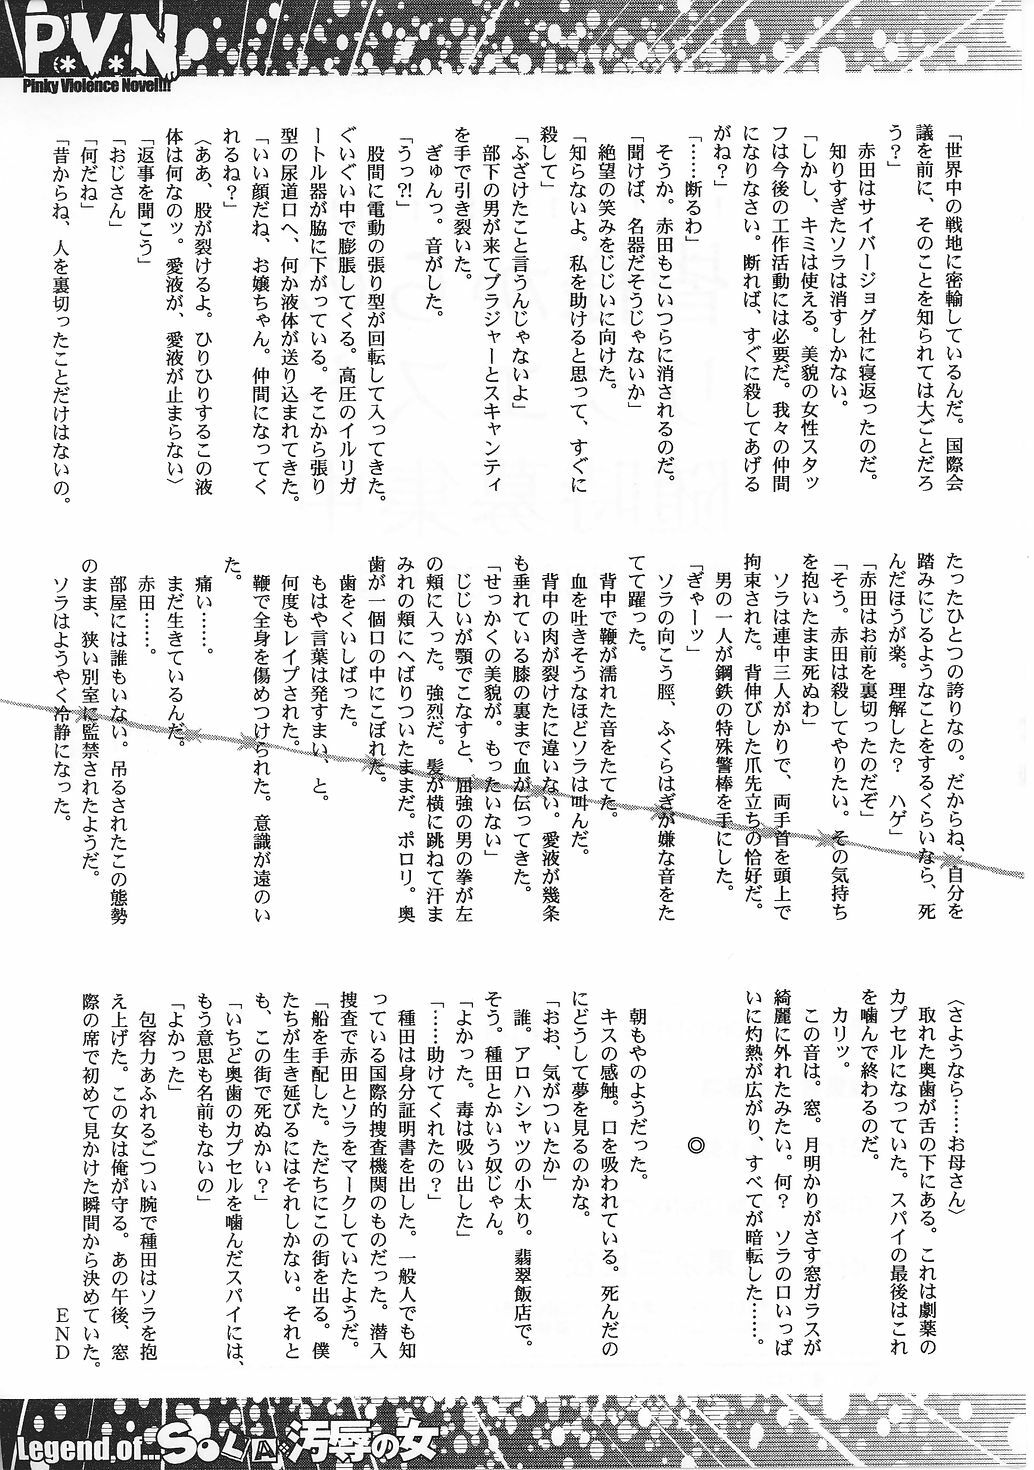 P.V.N
Pinky Violence Novel!!!
「世界中の戦地に密輸しているんだ。国際会
議を前に、そのことを知られては大ごとだろ
う？」
赤田はサイバージョグ社に寝返ったのだ。
知りすぎたソラは消すしかない。
「しかし、キミは使える。美貌の女性スタッ
フは今後の工作活動には必要だ。我々の仲間
になりなさい。断れば、すぐに殺してあげる
がね？」
「……断るわ」
そうか。赤田もこいつらに消されるのだ。
「聞けば、名器だそうじゃないか」
絶望の笑みをじじいに向けた。
「知らないよ。私を助けると思って、すぐに
殺して」
「ふざけたこと言うんじゃないよ」
部下の男が来てブラジャーとスキャンティ
を手で引き裂いた。
ぎゅんっ。音がした。
「うっ?!」
股間に電動の張り型が回転して入ってきた。
ぐいぐい中で膨脹してくる。高圧のイルリガ
ートル器が脇に下がっている。そこから張り
型の尿道口へ、何か液体が送り込まれてきた。
「いい顔だね、お嬢ちゃん。仲間になってく
れるね？」
〈ああ、股が裂けるよ。ひりひりするこの液
体は何なのッ。愛液が、愛液が止まらない〉
「返事を聞こう」
「おじさん」
「何だね」
「昔からね、人を裏切ったことだけはないの。
たったひとつの誇りなの。だからね、自分を
踏みにじるようなことをするくらいなら、死
んだほうが楽。理解した？　ハゲ」
「赤田はお前を裏切ったのだぞ」
「そう。赤田は殺してやりたい。その気持ち
を抱いたまま死ぬわ」
ソラは連中三人がかりで、両手首を頭上で
拘束された。背伸びした爪先立ちの恰好だ。
男の一人が鋼鉄の特殊警棒を手にした。
「ぎゃーッ」
ソラの向こう脛、ふくらはぎが嫌な音をた
てて躍った。
背中で鞭が濡れた音をたてた。
血を吐きそうなほどソラは叫んだ。
背中の肉が裂けたに違いない。愛液が幾条
も垂れている膝の裏まで血が伝ってきた。
「せっかくの美貌が。もったいない」
じじいが顎でこなすと、屈強の男の拳が左
の頬に入った。強烈だ。髪が横に跳ねて汗ま
みれの頬にへばりついたままだ。ポロリ。奥
歯が一個口の中にこぼれた。
歯をくいしばった。
もはや言葉は発すまい、と。
何度もレイプされた。
鞭で全身を傷めつけられた。意識が遠のい
た。
痛い……。
まだ生きているんだ。
赤田……。
部屋には誰もいない。吊るされたこの態勢
のまま、狭い別室に監禁されたようだ。
ソラはようやく冷静になった。
〈さようなら……お母さん〉
取れた奥歯が舌の下にある。これは劇薬の
カプセルになっていた。スパイの最後はこれ
を噛んで終わるのだ。
カリッ。
この音は。窓。月明かりがさす窓ガラスが
綺麗に外れたみたい。何？　ソラの口いっぱ
いに灼熱が広がり、すべてが暗転した……。
◎
朝もやのようだった。
キスの感触。口を吸われている。死んだの
にどうして夢を見るのかな。
「おお、気がついたか」
誰。アロハシャツの小太り。翡翠飯店で。
そう。種田とかいう奴じゃん。
「よかった。毒は吸い出した」
「……助けてくれたの？」
種田は身分証明書を出した。一般人でも知
っている国際的捜査機関のものだった。潜入
捜査で赤田とソラをマークしていたようだ。
「船を手配した。ただちにこの街を出る。僕
たちが生き延びるにはそれしかない。それと
も、この街で死ぬかい？」
「いちど奥歯のカプセルを噛んだスパイには、
もう意思も名前もないの」
「よかった」
包容力あふれるごつい腕で種田はソラを抱
え上げた。この女は俺が守る。あの午後、窓
際の席で初めて見かけた瞬間から決めていた。
ＥＮＤ
Legend.of... SOLA 汚辱の女